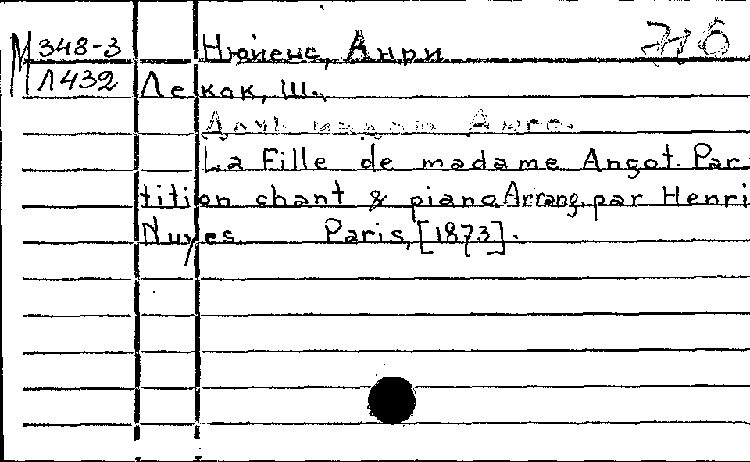 М 348-3 Нюиенс, Анри
Л432 Лекок, Ш.
Дочь мадам Анго.
La Fille de madame Angot. Par
tition chant & piano Arrang. par Henri
Nuyes Paris, [1873].